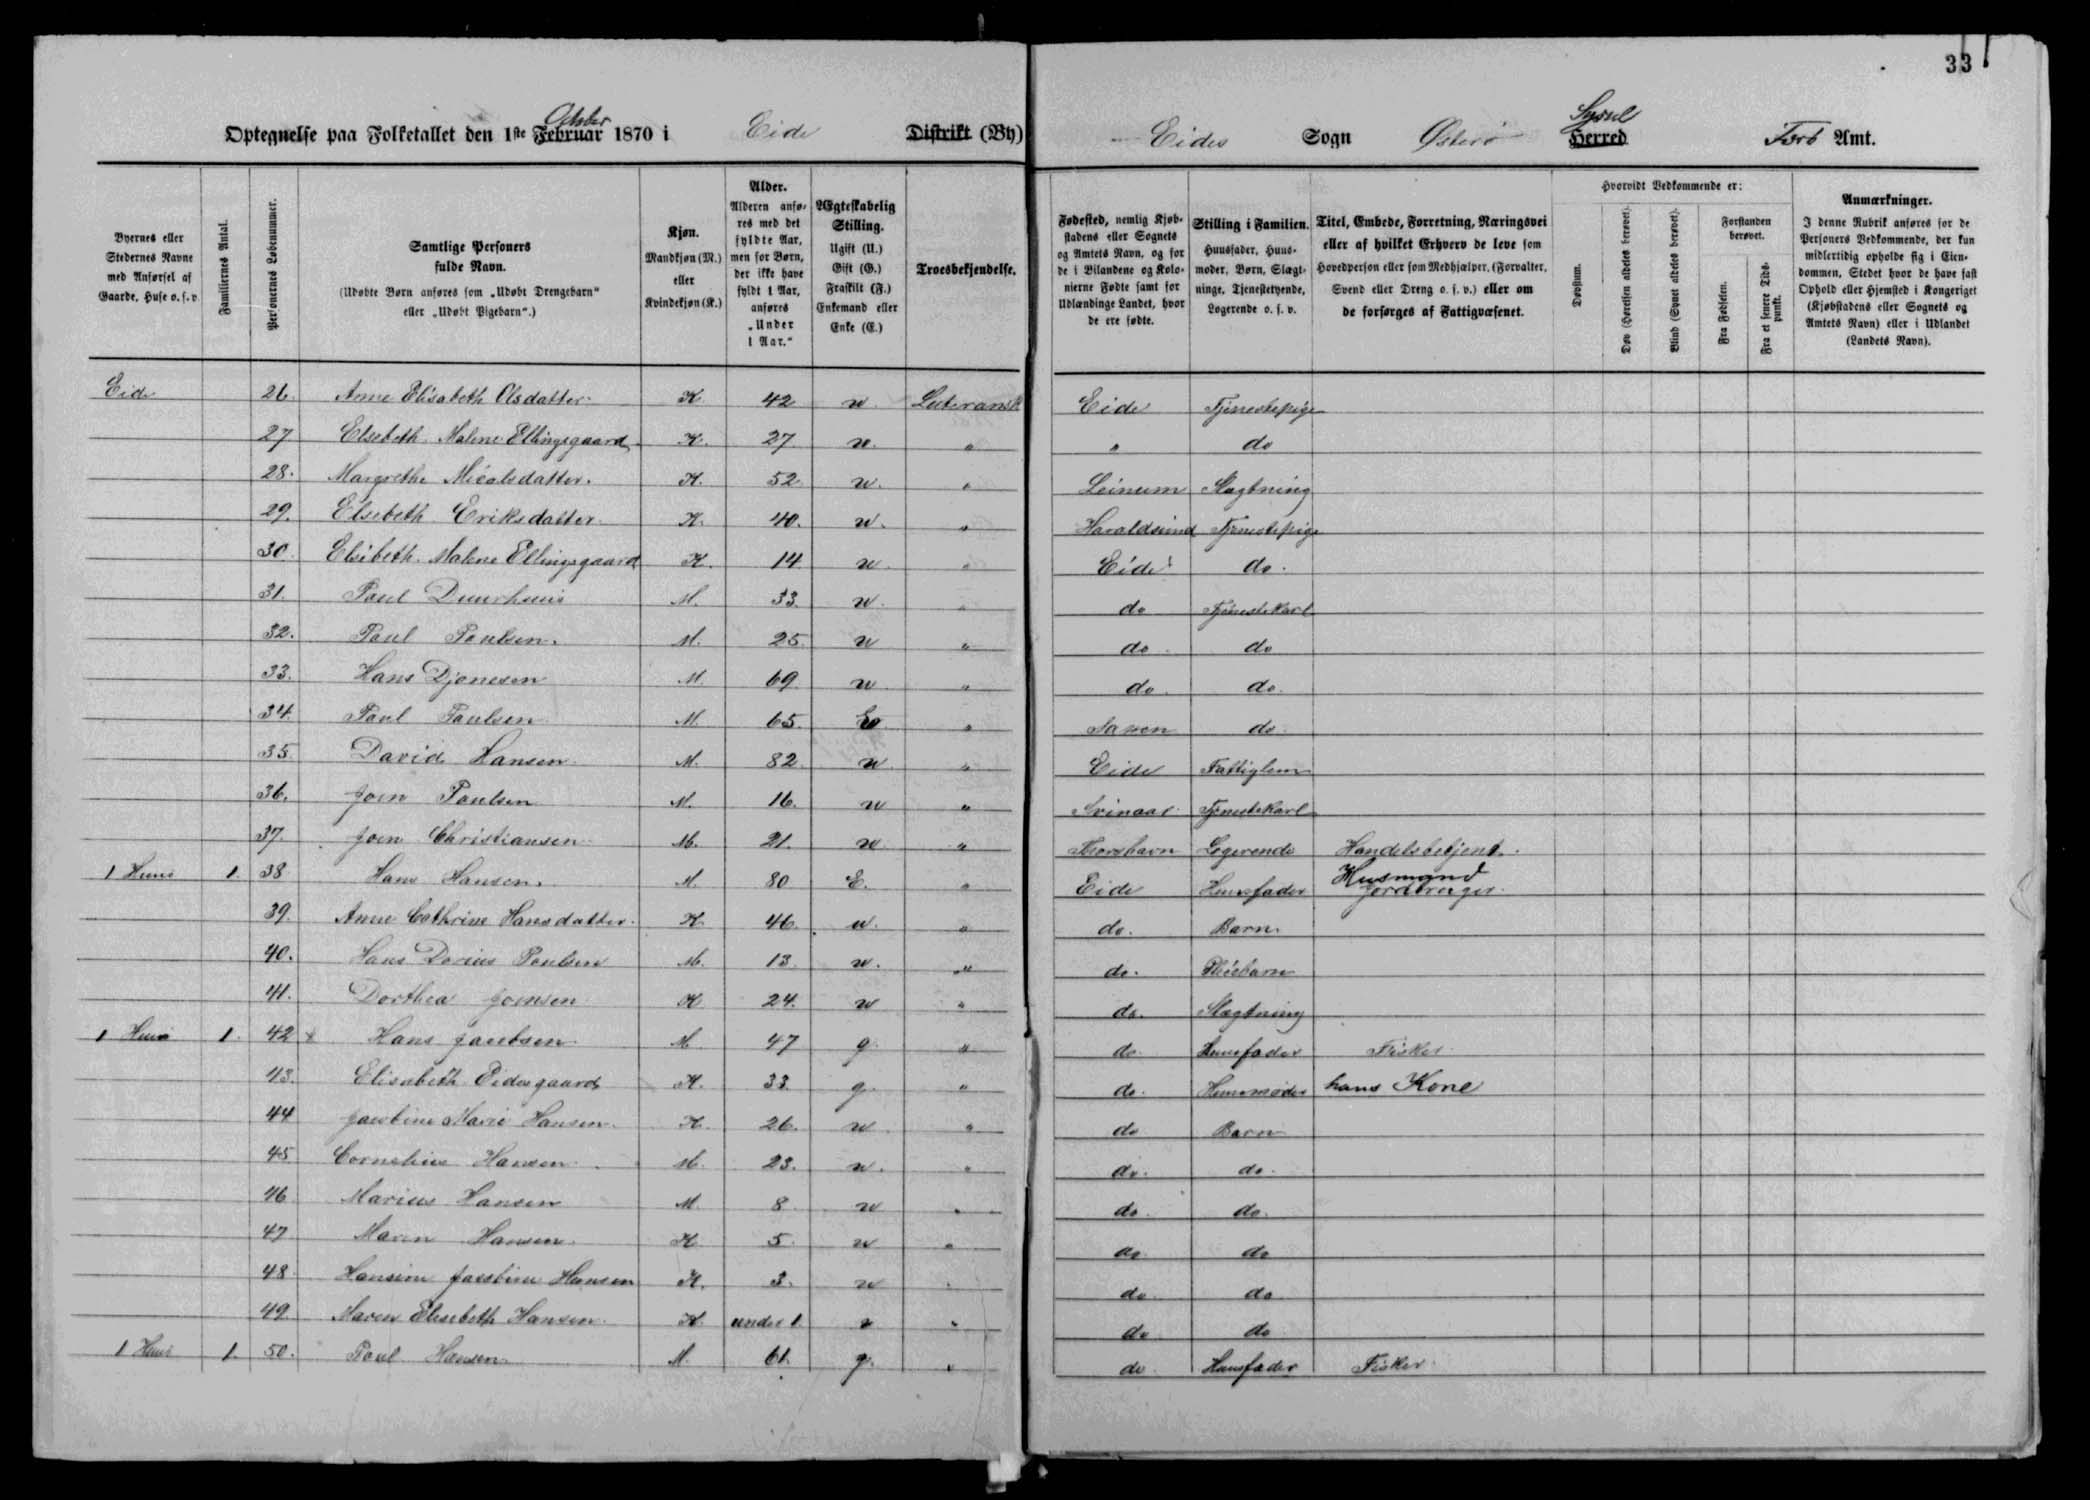 33
Octbr
Optegnelse paa Folketallet den 1ste Februar 1870 i Eide Distrikt (By)
Syssel
Eides Sogn Østerø Herred Færø Amt.
Byernes eller Stedernes Navne med Anførsel af Gaarde, Huse o. s. v.
Familiernes Antal.
Personernes Løbenummer.
Samtlige Personers fulde Navn.
(Udøbte Børn anføres som „Udøbt Drengebarn“ eller „Udøbt Pigebarn“.)
Kjøn.
Mandkjøn (M.) eller Kvindekjøn (K.)
Alder.
Alderen anføres med det fyldte Aar, men for Børn, der ikke have fyldt 1 Aar, anføres „Under 1 Aar.“
Ægteskabelig Stilling.
Ugift (U.) Gift (G.) Fraskilt (F.) Enkemand eller Enke (E.)
Troesbekjendelse.
Fødested, nemlig Kjøbstadens eller Sognets og Amtets Navn, og for de i Bilandene og Kolonierne Fødte samt for Udlændinge Landet, hvor de ere fødte.
Stilling i Familien.
Huusfader, Huusmoder, Børn, Slægtninge, Tjenestetyende, Logerende o. s. v.
Titel, Embede, Forretning, Næringsvei eller af hvilket Erhverv de leve som Hovedperson eller som Medhjælper, (Forvalter, Svend eller Dreng o. s. v.) eller om de forsørges af Fattigvæsenet.
Hvorvidt Vedkommende er:
Døvstum.
Døv (Hørelsen aldeles berøvet).
Blind (Synet aldeles berøvet).
Forstanden berøvet.
Fra Fødselen.
Fra et senere Tidspunkt.
Anmærkninger.
I denne Rubrik anføres for de Personers Vedkommende, der kun midlertidig opholde sig i Eiendommen, Stedet hvor de have fast Ophold eller Hjemsted i Kongeriget (Kjøbstadens eller Sognets og Amtets Navn) eller i Udlandet (Landets Navn).
Eide 26. Anne Elisabeth Olsdatter K. 42 u. Luteransk Eide Tjenestepige
27 Elsebeth Malene Ellingsgaard K. 27 u. " " do
28. Margrethe Micalsdatter. K. 52 u. " Leinum Slægtning
29. Elsebeth Eriksdatter K. 40. u. " Haraldsund Tjenestepige
30. Elsebeth Malene Ellingsgaard K. 14 u. " Eide do.
31. Poul Duurhuus M. 33. u. " do Tjenestekarl
32. Poul Poulsen. M. 25. u " do do
33. Hans Djonesen M. 69 u. " do. do.
34. Poul Poulsen M. 65. E. " do.
35. David Hansen M. 82 u. " Eide Fattiglem
36. Joen Poulsen M. 16. u " Svinaae Tjenestekarl
37. Joen Christiansen M. 21. u " Thorshavn Logerende Handelsbetjent.
1 Huus 1. 38 Hans Hansen. M. 80 E. " Eide Huusfader Husmand Jordbruger.
39. Anne Cathrine Hansdatter. K. 46. u. " do. Barn.
40. Hans Dorius Poulsen M. 13 u. " do. Pleiebarn
41. Dorthea Joensen K 24. u " do. Slægtning
1 Huus 1. 42 x Hans Jacobsen M. 47 g. " do. Huusfader Fisker
43. Elisabeth Eidesgaard K. 33 g. " do. Huusmoder hans Kone
44 Jacobine Marie Hansen. K. 26. u " do Barn
45 Cornelius Hansen M. 23. u. " do. do.
46 Marius Hansen M 8 u " do. do.
47 Maren Hansen. K 5. u " do. do
48 Hansine Jacobine Hansen K. 3. u " do. do
49. Maren Elsebeth Hansen K. under 1 u " do do
1 Huus 1. 50. Poul Hansen M. 61. g. " do. Huusfader Fisker